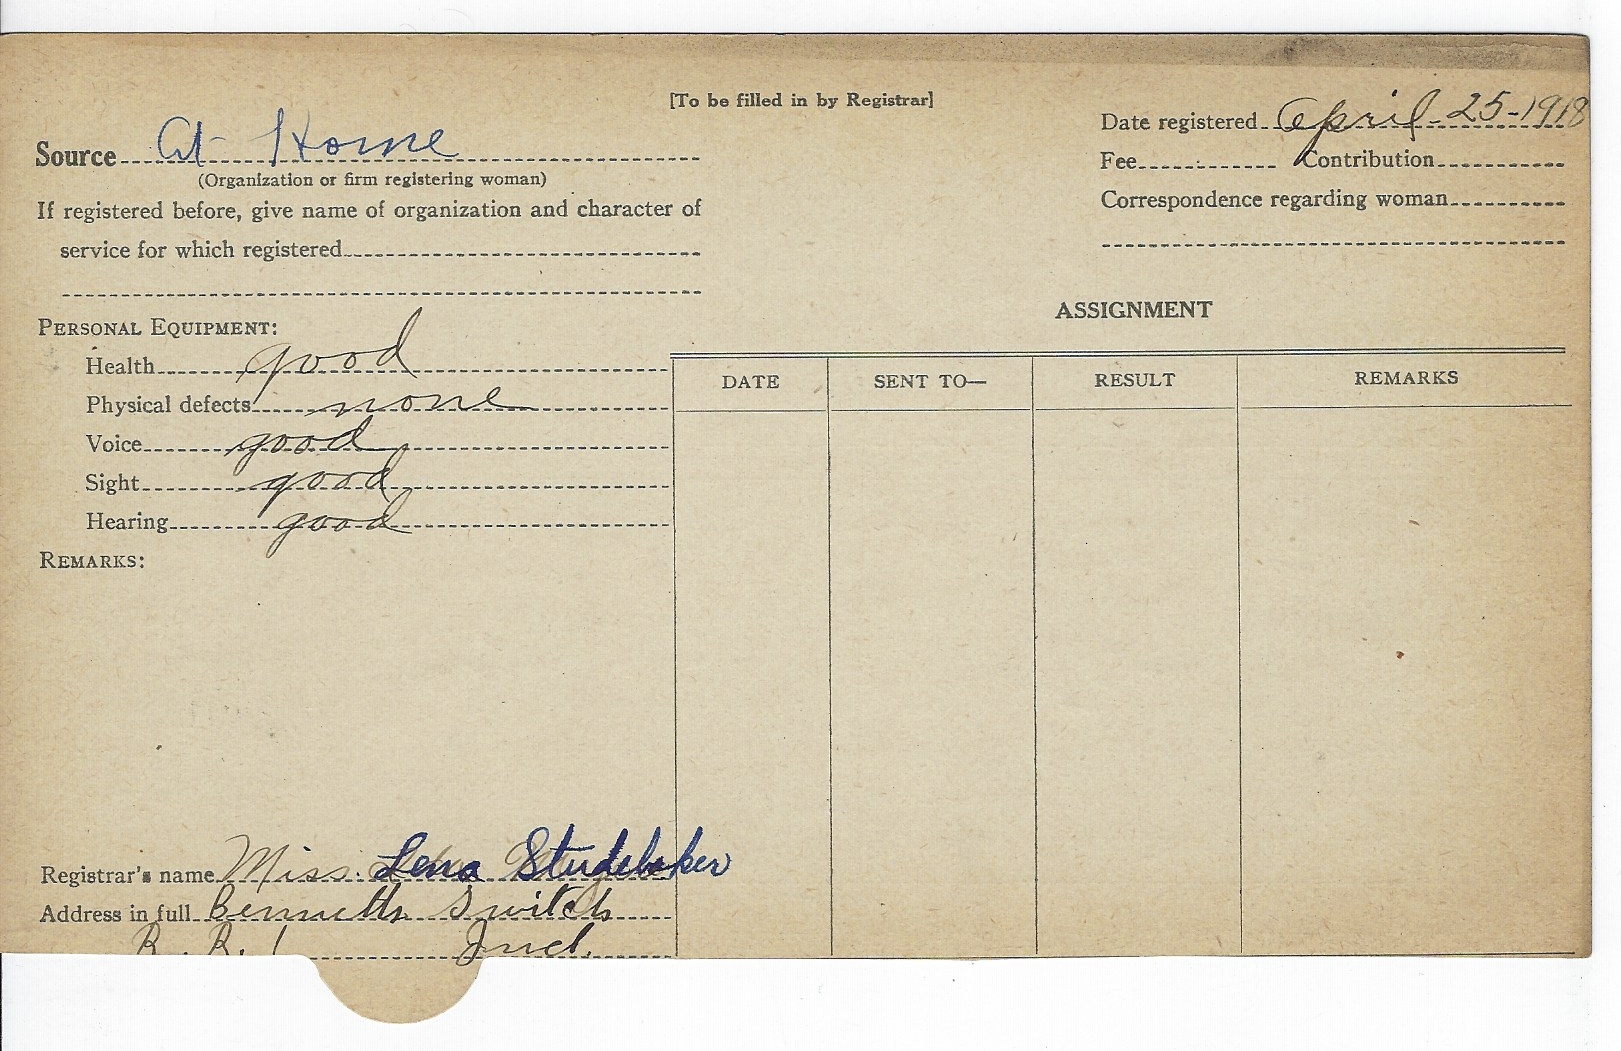 [To be filled in by Registrar]
Source At Home
(Organization or firm registering woman)
If registered before, give name of organization and character of
service for which registered
Date registered April 25-1918
Fee Contribution
Correspondence regarding woman
PERSONAL EQUIPMENT:
Health good
Physical defects none
Voice good
Sight good
Hearing good
REMARKS:
ASSIGNMENT
DATE SENT TO— RESULT REMARKS
Registrar's name Miss. Lena Studebaker
Address in full Bennetts Switch
R. R. 1 Ind.